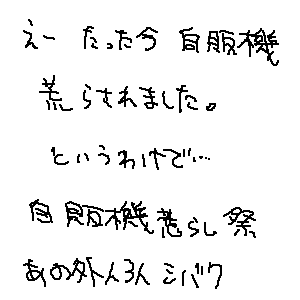 えー たった今 自販機
荒らされました。
というわけで…
自販機荒らし祭
あの外人3人シバク